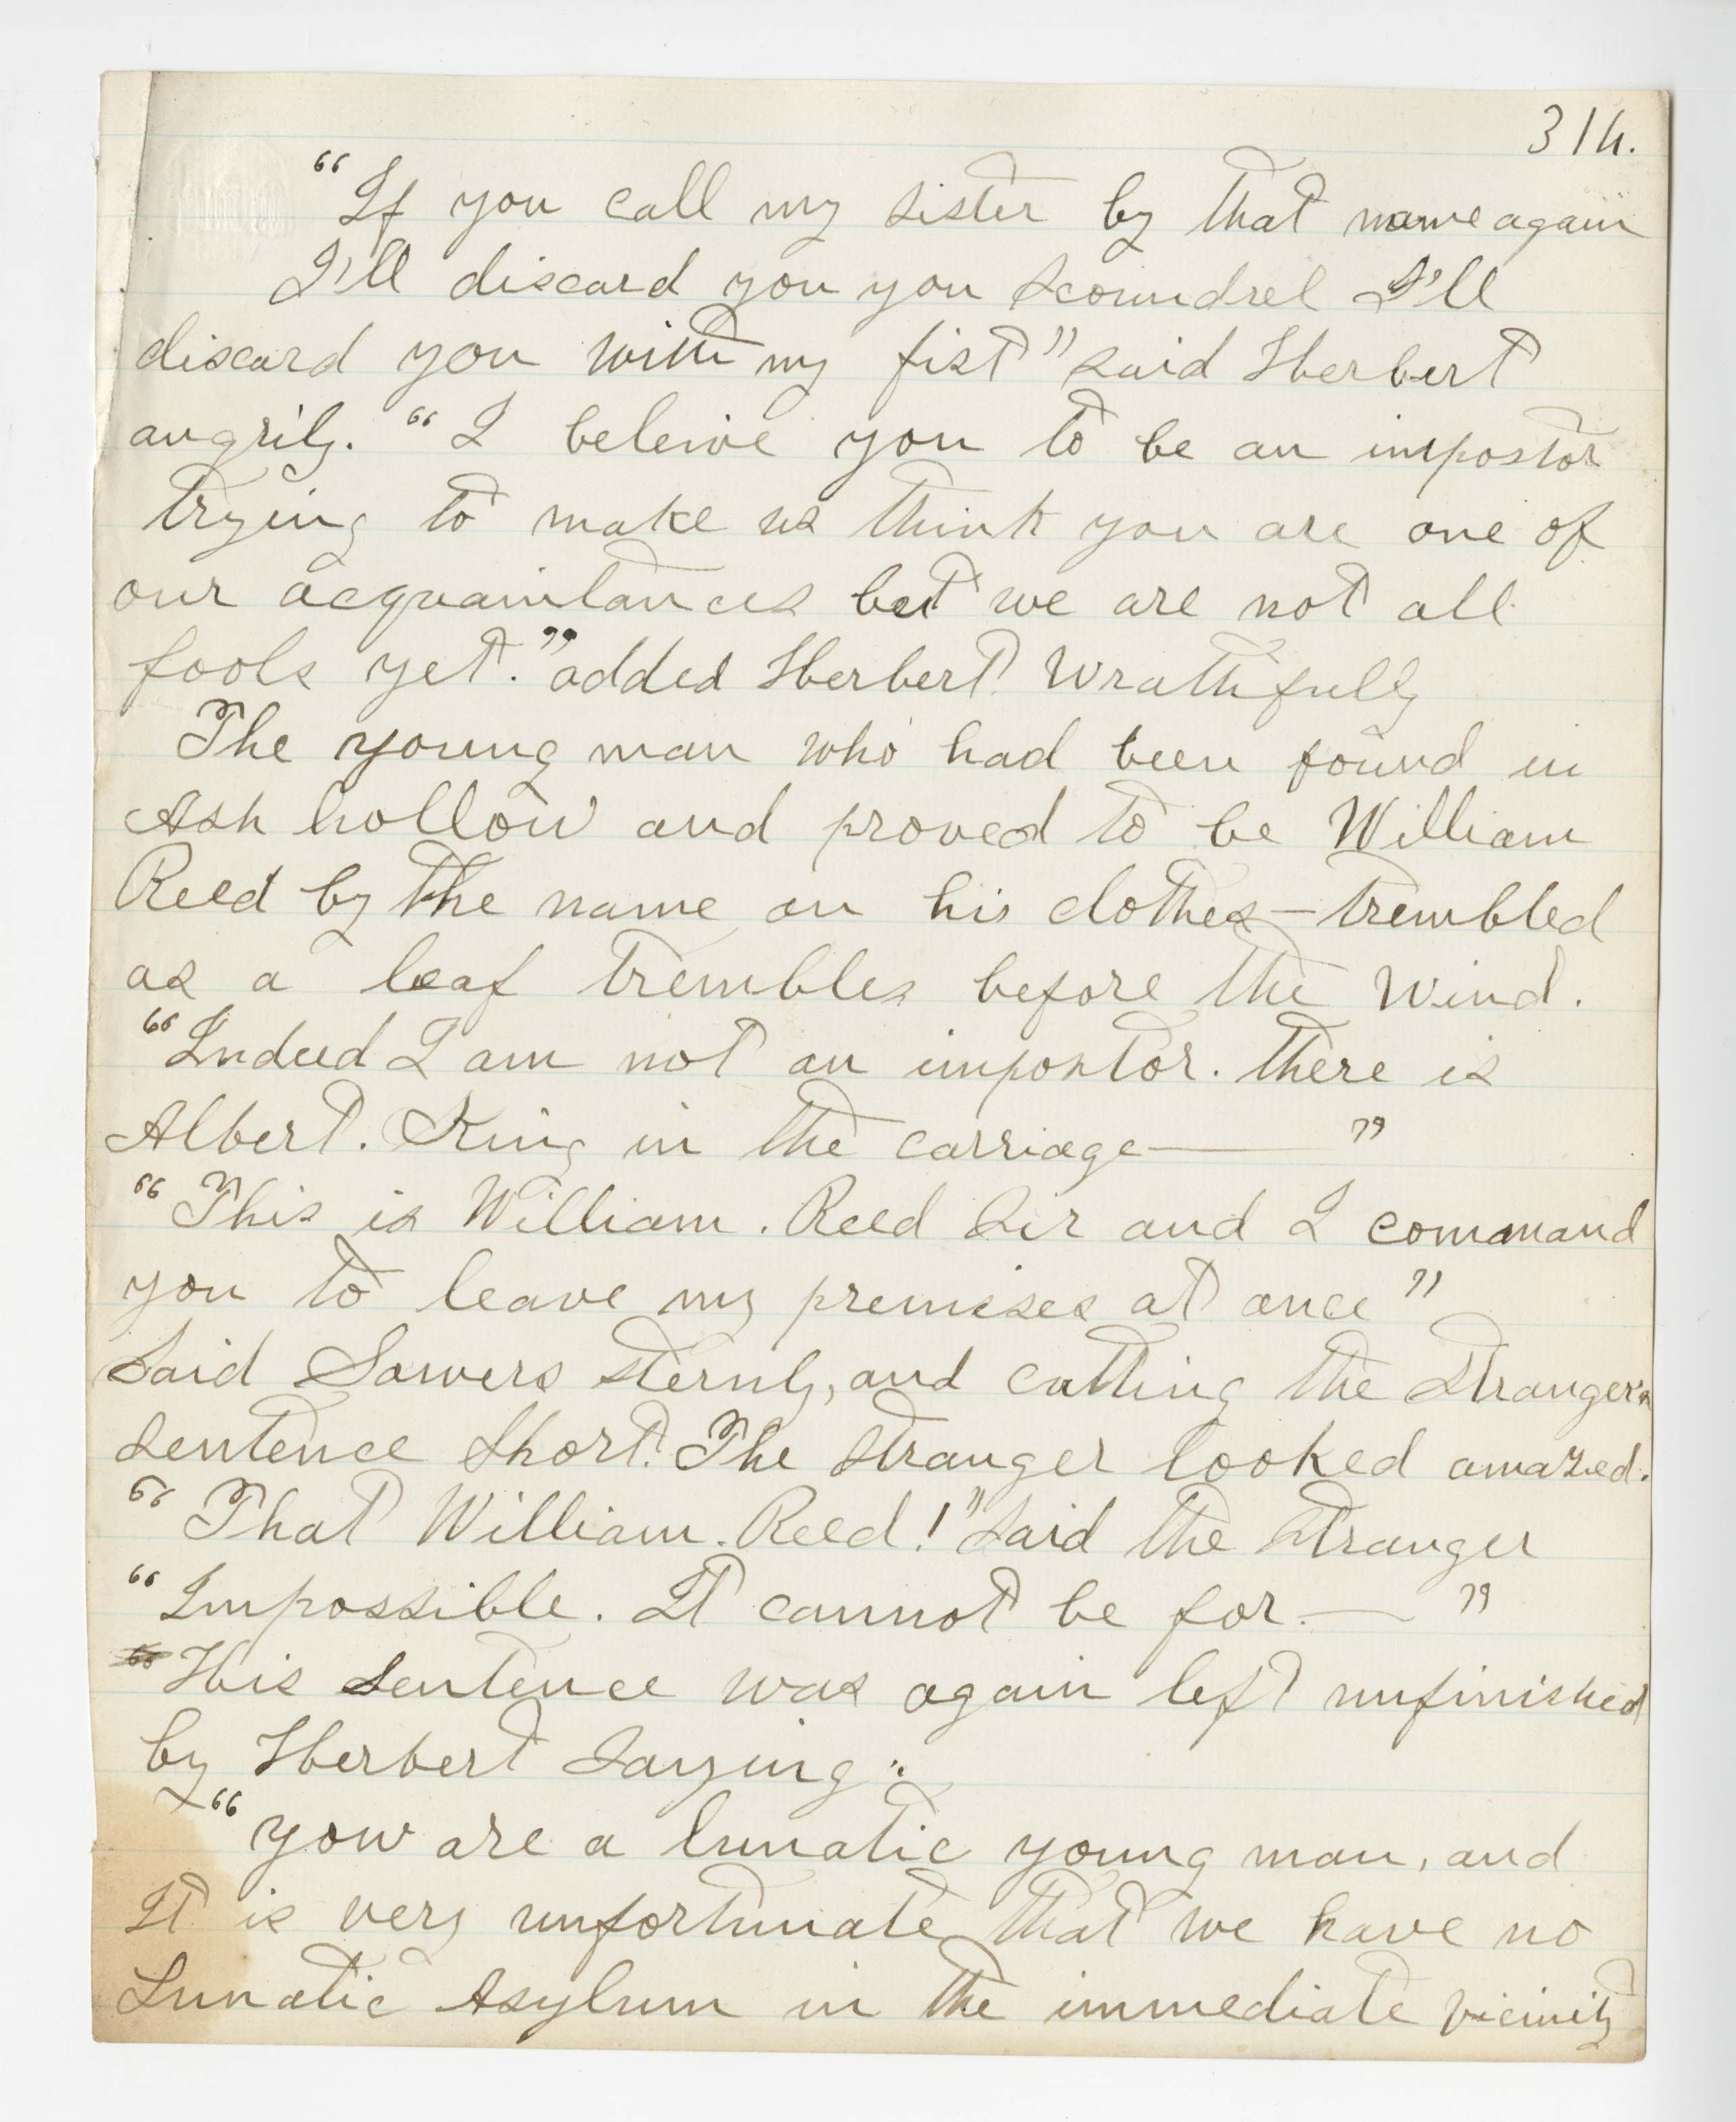 314.
"If you call my sister by that name again
I'll discard you you scoundrel I'll
discard you with my fist" said Herbert
angrily. "I beleive you to be an impostor
trying to make us think you are one of
our acquaintances but we are not all
fools yet." added Herbert wrathfully
The young man who had been found in
Ash hollow and proved to be William
Reed by the name on his clothes — trembled
as a leaf trembles before the wind.
"Indeed I am not an impostor. there is
Albert. King in the carriage — "
"This is William. Reed sir and I command
you to leave my premises at once"
said Sowers sternly, and cutting the stranger's
sentence short. The stranger looked amazed.
"That William. Reed!" said the stranger
"Impossible. It cannot be for. — "
His sentence was again left unfinished
by Herbert saying:
"you are a lunatic young man, and
It is very unfortunate that we have no
Lunatic Asylum in the immediate vicinity